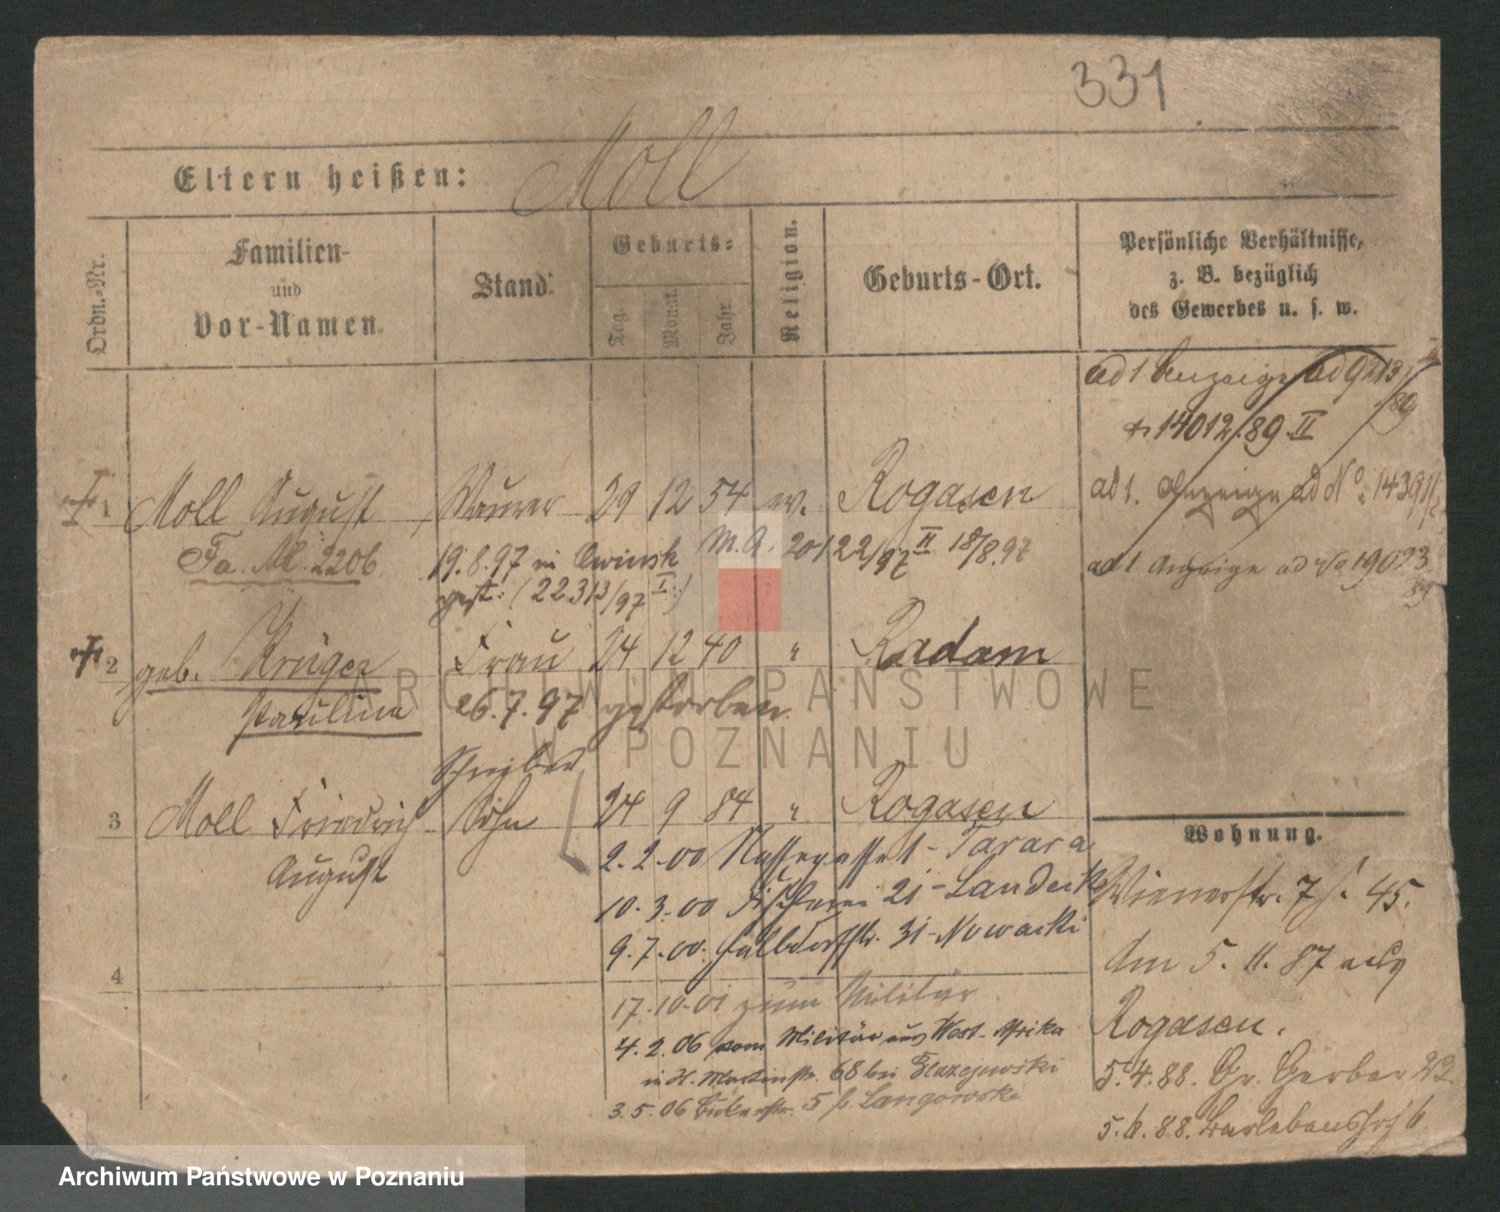 331
Eltern heißen: Moll
Ordn.-Nr.
Familien-
und
Vor-Namen.
Stand.
Geburts-
Tag.
Monat.
Jahr.
Religion.
Geburts-Ort.
Persönliche Verhältnisse,
z. B. bezüglich
des Gewerbes u. s. w.
ad 1 Anzeige ad 9213
/89
14012/89 II
1 Moll August Maurer 29 12 54 ev. Rogasen
ad 1. Anzeige ad No. 1439
19.8.97 in Owinsk M.A. 20122/97 II 18/8.97
gest: (22313/97 I)
ad 1 Anzeige ad No 19023
89
2 geb. Krüger Frau 24 12 40 " Radom
Pauline 26.7.97 gestorben.
Schreiber
3 Moll Friedrich Sohn 24 9 84 " Rogasen
August
2.2.00 1 - Tarara
10.3.00 Fischerei 21 - Landeck
9.7.00. Halbdorfstr. 31 - Nowacki
4
17.10.01 zum Militär
4.2.06 vom Militär aus West-Afrika
in H. Martinstr. 68 bei Blazejewski
3.5.06 5 b. Langowski
Wohnung.
Wienerstr. 7 45.
Am 5. 11. 87 aus
Rogasen.
5.4.88. Gr. Gerber
5.6.88. Barlebenshof 6.
ARCHIWUM PAŃSTWOWE
W POZNANIU
Archiwum Państwowe w Poznaniu